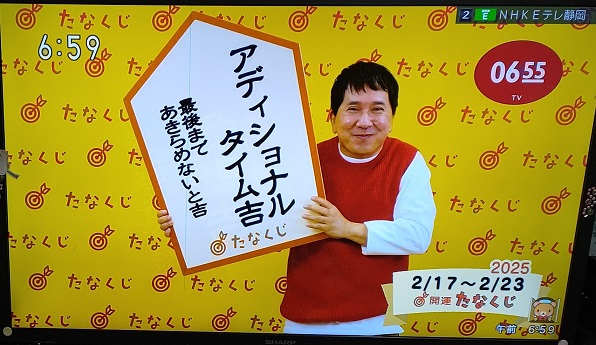 2 E NHKEテレ静岡
6:59
0655
TV
アディショナル
タイム吉
最後まで
あきらめないと吉
たなくじ
2025
2/17～2/23
開運たなくじ
午前 6:59
SHARP
たなくじ
たなくじ
たなくじ
たなくじ
たなくじ
たなくじ
たなくじ
たなくじ